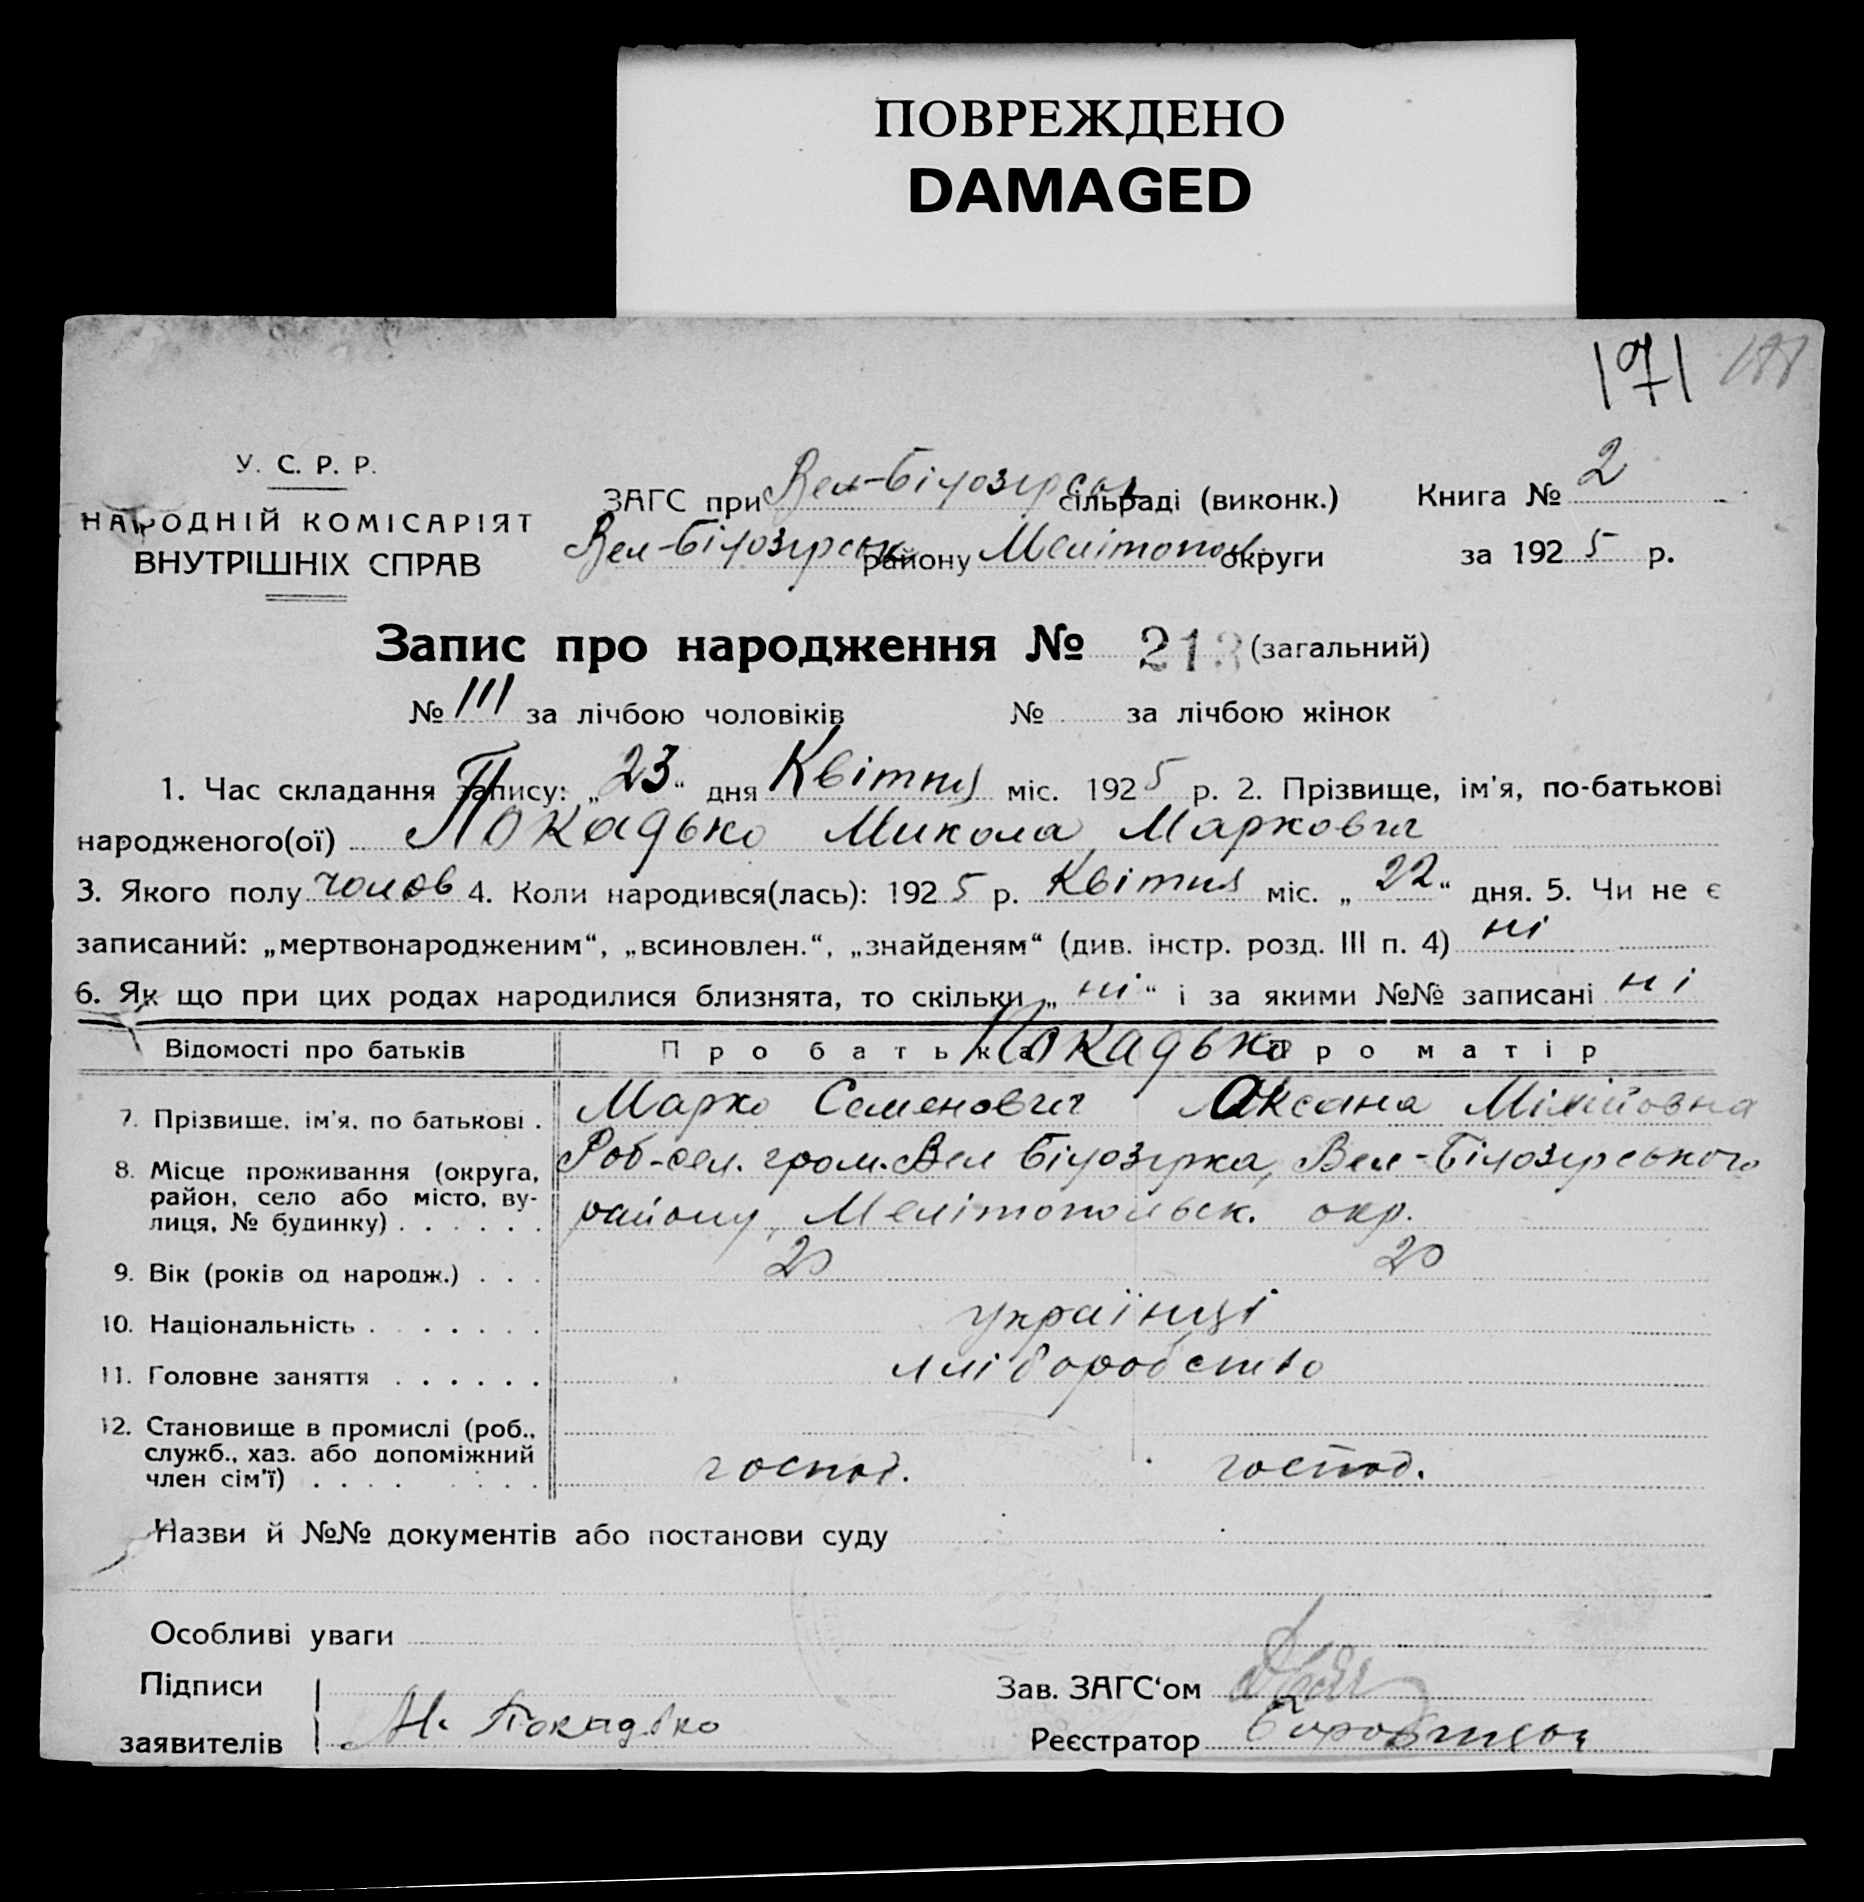 ПОВРЕЖДЕНО
DAMAGED
171
У. С. Р. Р.
НАРОДНІЙ КОМІСАРІЯТ
ВНУТРІШНІХ СПРАВ
ЗАГС при Вел-Білозірськ сільраді (виконк.)
Вел-Білозірськ району Мелітопол округи
Книга № 2
за 1925 р.
Запис про народження № 213 (загальний)
№ 111 за лічбою чоловіків № за лічбою жінок
1. Час складання запису: „23“ дня Квітня міс. 1925 р. 2. Прізвище, ім'я, по-батькові
народженого(ої) Покадько Микола Маркович
3. Якого полу чолов 4. Коли народився(лась): 1925 р. Квітня міс. „22“ дня. 5. Чи не є
записаний: „мертвонародженим“, „всиновлен.“, „знайденям“ (див. інстр. розд. III п. 4) ні
6. Як що при цих родах народилися близнята, то скільки „ні“ і за якими №№ записані ні
Відомості про батьків Про батька Покадько Про матір
7. Прізвище, ім'я, по батькові . Марко Семенович Оксана
8. Місце проживання (округа, Роб-сел. гром. Вел Білозірка, Вел-Білозірського
район, село або місто, ву-
лиця, № будинку) . . . . . . району, Мелітопольськ. окр.
9. Вік (років од народж.) . . . 20 20
10. Національність . . . . . . . українці
11. Головне заняття . . . . . . хліборобство
12. Становище в промислі (роб.,
служб., хаз. або допоміжний
член сім'ї) . . . . . . . . господ. господ.
Назви й №№ документів або постанови суду
Особливі уваги
Підписи
заявителів М. Покадько
Зав. ЗАГС‘ом
Реєстратор